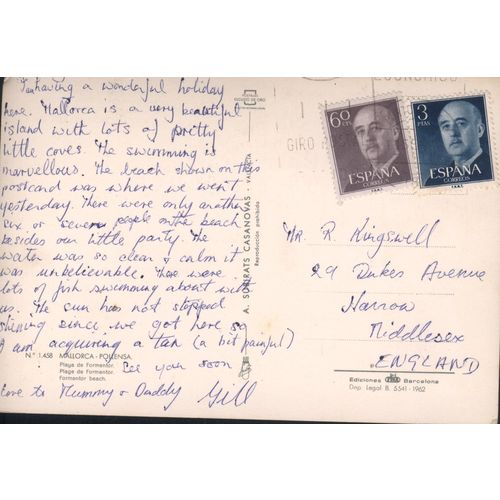 I'm having a wonderful holiday
here. Mallorca is a very beautiful
island with lots of pretty
little coves. The swimming is
marvellous. The beach shown on this
postcard was where we went
yesterday. There were only another
six or seven people on the beach
besides our little party. The
water was so clear & calm it
was unbelievable. There were
lots of fish swimming about with
us. The sun has not stopped
shining since we got here so
I am acquiring a tan (a bit painful)
See you soon
Love to Mummy & Daddy Gill
N.º 1.458 MALLORCA - POLLENSA.
Playa de Formentor.
Plage de Formentor.
Formentor beach.
A. SUBIRATS CASANOVAS - VALENCIA
Reproducción prohibida
60 CTS
ESPAÑA
CORREOS
3 PTAS
ESPAÑA
CORREOS
GIRO
Mr. R. Kingswell
29 Dukes Avenue
Harrow
Middlesex
ENGLAND
Ediciones Barcelona
Dep. Legal B. 5541-1962